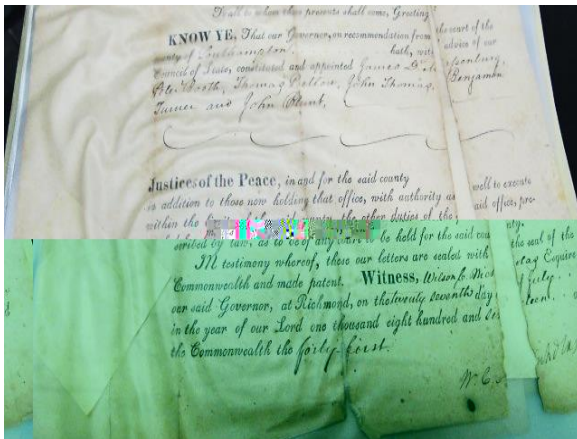 To all to whom these presents shall come, Greeting
KNOW YE, That our Governor, on recommendation from the court of the
county of Southampton, hath, with advice of our
Council of State, constituted and appointed James D.
Pete Booth, Thomas Pretlow, John Thomas, Benjamin
Turner and John Blunt,
Justices of the Peace, in and for the said county
in addition to those now holding that office, with authority as well to execute
within the the other duties of the said office, pre-
scribed by law, as to be of any court to be held for the said county.
IN testimony whereof, these our letters are sealed with the seal of the
Commonwealth and made patent. Witness, Wilson C. Esquire
our said Governor, at Richmond, on the twenty seventh day of July
in the year of our Lord one thousand eight hundred and
the Commonwealth the forty first.
W. C.